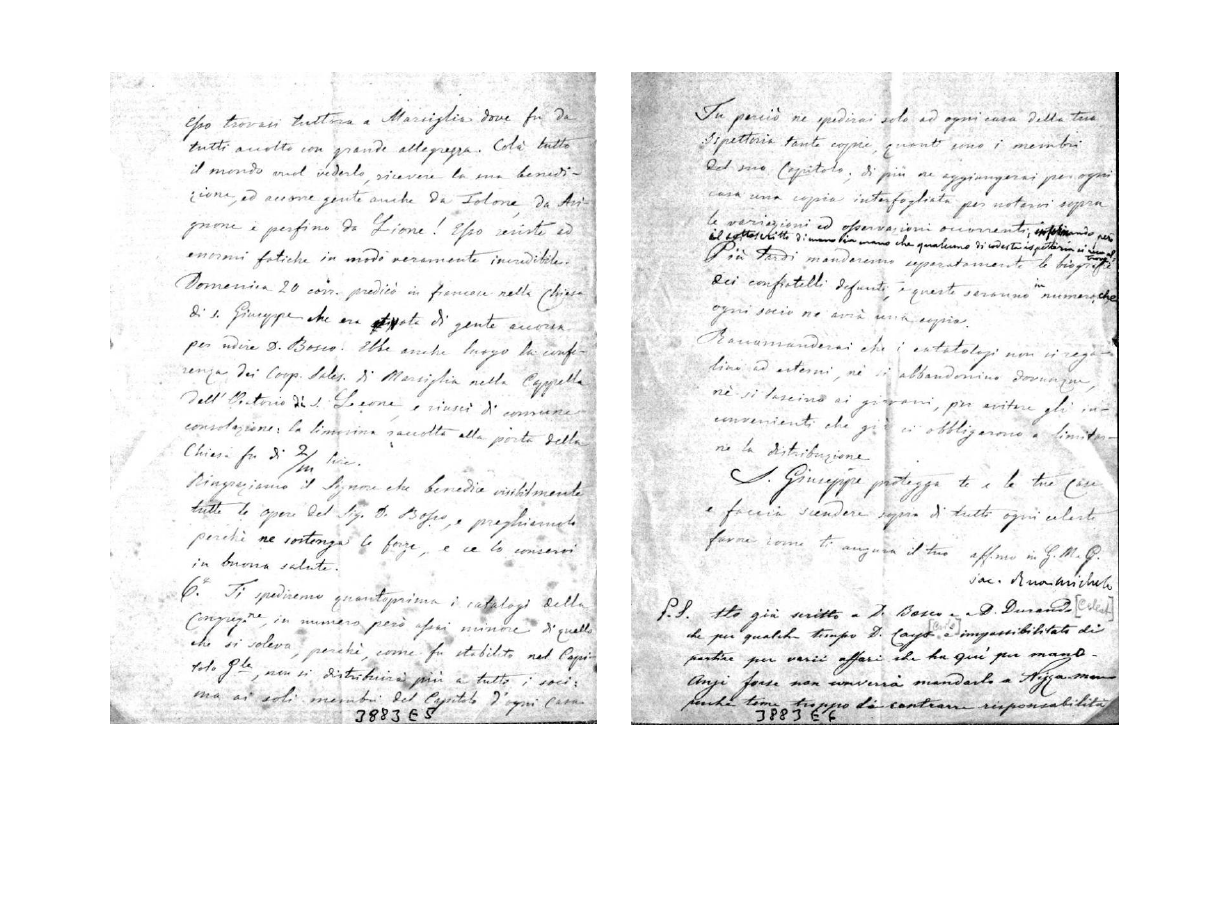 Esso trovasi tuttora a Marsiglia dove fu da
tutti accolto con grande allegrezza. Colà tutto
il mondo vuol vederlo, ricevere la sua benedi-
zione, ed accorre gente anche da Tolone, da Avi-
gnone e perfino da Lione! Esso resiste ad
enormi fatiche in modo veramente incredibile.
Domenica 20 corr. predicò in francese nella Chiesa
di S. Giuseppe che era di gente accorsa
per udire D. Bosco. Ebbe anche luogo la confe-
renza dei Coop. Sales. di Marsiglia nella Cappella
dell'Oratorio di S. Leone, e riuscì di comune
consolazione: la limosina raccolta alla porta della
Chiesa fu di 2/m lire.
Ringraziamo il Signore che benedice visibilmente
tutte le opere del Sig. D. Bosco, e preghiamolo
perchè ne sostenga le forze, e ce lo conservi
in buona salute.
6.° Ti spediremo quantoprima i catalogi della
Congreg.ne, in numero però assai minore di quello
che si soleva, perchè, come fu stabilito nel Capi-
tolo G.le, non si distribuirà più a tutti i soci:
ma ai soli membri del Capitolo d'ogni Casa
3883 E 5
Tu perciò ne spedirai solo ad ogni casa della tua
Ispettoria tante copie, quanti sono i membri
del suo Capitolo; di più ne aggiungerai per ogni
casa una copia interfogliata per notarvi sopra
le variazioni ed osservazioni occorrenti,
il sottoscritto di mano in mano che qualcuno di codesta ispettoria
Più tardi manderemo separatamente le biografie
dei confratelli defunti, e queste saranno in numero, che
ogni socio ne avrà una copia.
Raccomanderai che i catalogi non si rega-
lino ad esterni, nè si abbandonino dovunque,
nè si lascino ai giovani, per evitare gli in-
convenienti che già ci obbligarono a limitar-
ne la distribuzione
S. Giuseppe protegga te e le tue Case
e faccia scendere sopra di tutti ogni celeste
favore come ti augura il tuo affmo in G. M. G.
Sac. Rua Michele
P.S. Ho già scritto a D. Bosco e a D. Durando [Celest]
che per qualche tempo D. è impossibilitato di
partire per varii affari che ha quì per mano.
Anzi forse non converrà mandarlo a Nizza mare
perchè teme troppo di contrarre responsabilità
3883 E 6